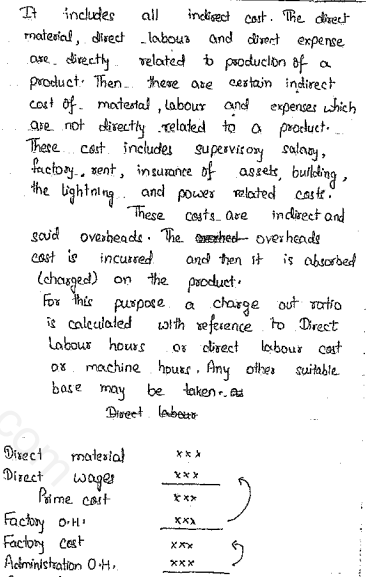 It includes all indirect cost. The direct
material, direct labour and direct expense
are directly related to production of a
product. Then there are certain indirect
cost of material, labour and expenses which
are not directly related to a product.
These cost includes supervisory salary,
factory rent, insurance of assets, building,
the lightning and power related costs.
These costs are indirect and
said overheads. The overhed overheads
cost is incurred and then it is absorbed
(charged) on the product.
For this purpose a charge out ratio
is calculated with reference to Direct
Labour hours or direct labour cost
or machine hours. Any other suitable
base may be taken. as
Direct labour
Direct material xxx
Direct wages xxx
Prime cost xxx
Factory O.H. xxx
Factory cost xxx
Administration O.H. xxx